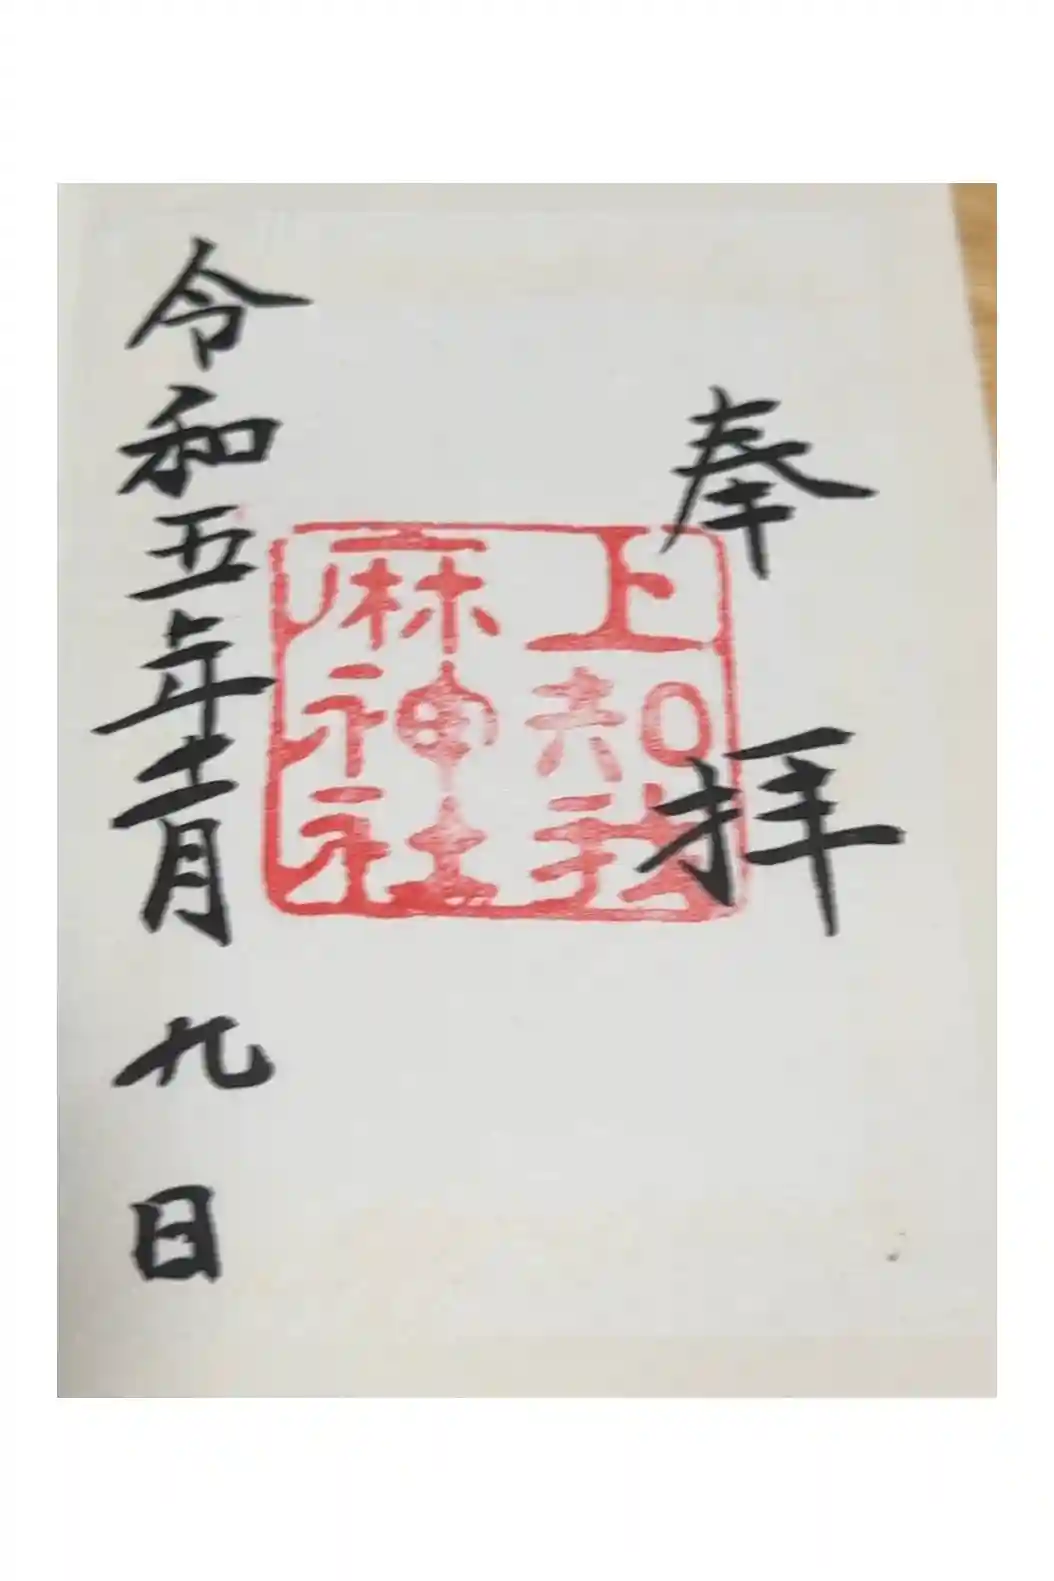 奉拝
上知我
麻神社
令和五年十一月九日